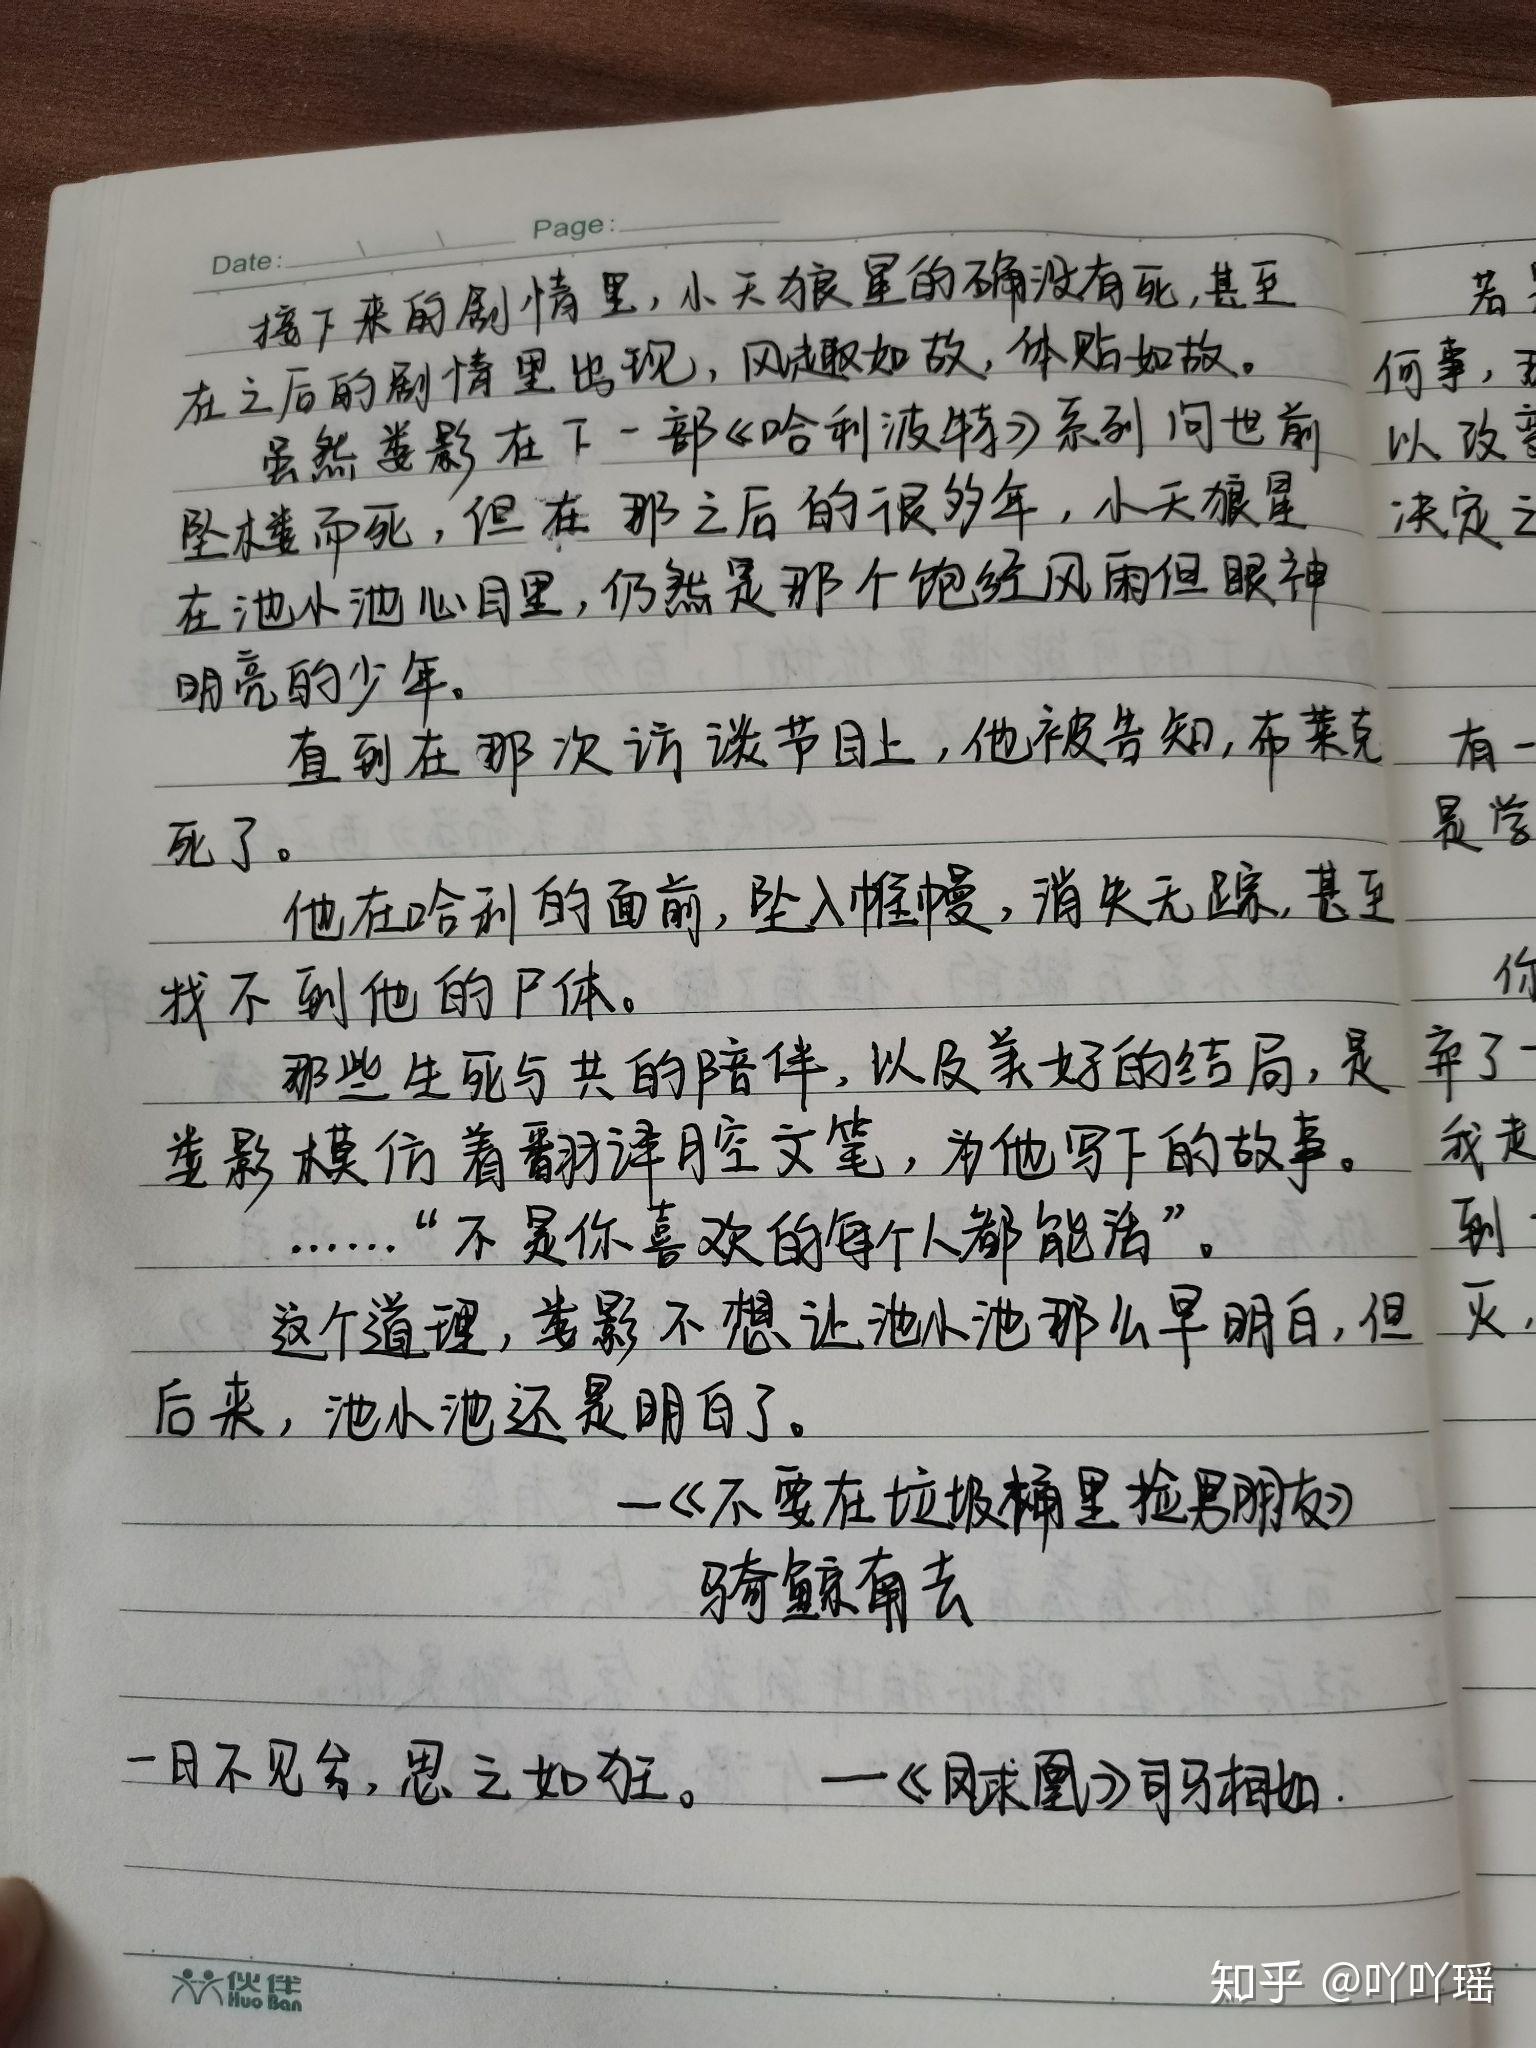 Date:
Page:
接下来的剧情里,小天狼星的确没有死,甚至
在之后的剧情里出现,风趣如故,体贴如故。
虽然娄影在下一部《哈利波特》系列问世前
坠楼而死,但在那之后的很多年,小天狼星
在池小池心目里,仍然是那个饱经风雨但眼神
明亮的少年。
直到在那次访谈节目上,他被告知,布莱克
死了。
他在哈利的面前,坠入帷幔,消失无踪,甚至
找不到他的尸体。
那些生死与共的陪伴,以及美好的结局,是
娄影模仿着翻译腔文笔,为他写下的故事。
……“不是你喜欢的每个人都能活”。
这个道理,娄影不想让池小池那么早明白,但
后来,池小池还是明白了。
—《不要在垃圾桶里捡男朋友》
骑鲸南去
一日不见兮,思之如狂。 —《凤求凰》司马相如.
伙伴
Huo Ban
若
何事,
以改
决定之
有一
是学
你
弃了一
我走
到
灭,
知乎 @吖吖瑶